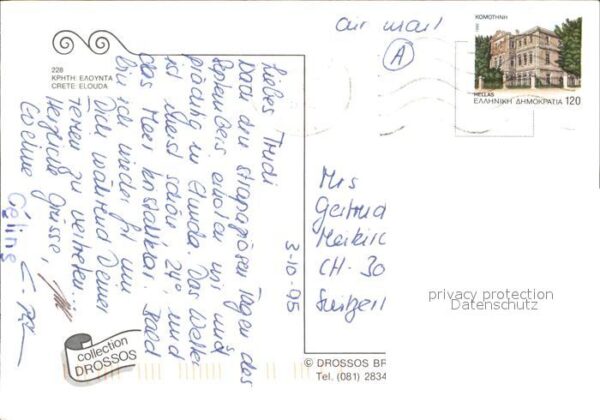 air mail
A
ΚΟΜΟΤΗΝΗ
HELLAS
ΕΛΛΗΝΙΚΗ ΔΗΜΟΚΡΑΤΙΑ 120
228
ΚΡΗΤΗ ΕΛΟΥΝΤΑ
CRETE: ELOUDA
3-10-95
Liebes Trudi
Nach den strapaziösen Tagen des
Septembers erholen wir uns
prächtig in Elunda. Das Wetter
ist meist schön, 24°, und
das Meer kristallklar. Bald
bin ich wieder fit um
Dich während Deiner
Ferien zu vertreten...
Herzliche Grüsse,
Céline
Mrs
Gertrud
Meikirc
CH-30
privacy protection
Datenschutz
collection
DROSSOS
© DROSSOS BR
Tel. (081) 2834